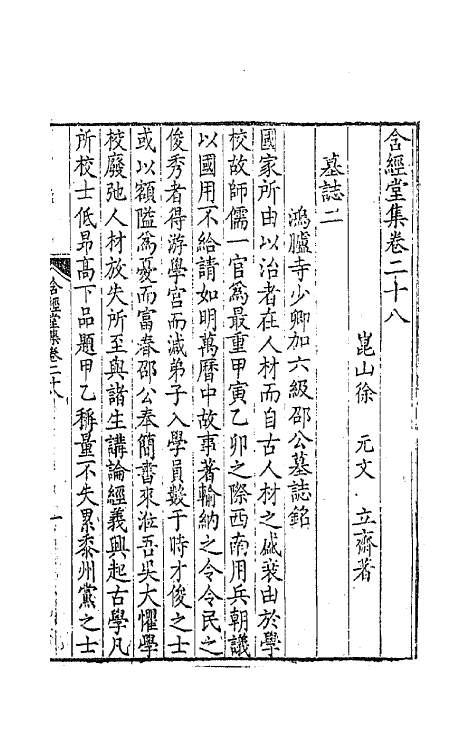 含經堂集卷二十八
崑山徐 元文 立齋著
墓誌二
鴻臚寺少卿加六級邵公墓誌銘
國家所由以治者在人材而自古人材之盛衰由於學
校故師儒一官爲最重甲寅乙卯之際西南用兵朝議
以國用不給請如明萬曆中故事著輸納之令令民之
俊秀者得游學宮而減弟子入學員數于時才俊之士
或以額隘爲憂而富春邵公奉簡書來涖吾吳大懼學
校廢弛人材放失所至與諸生講論經義興起古學凡
所校士低昂高下品題甲乙稱量不失累黍州黨之士
含經堂集卷二十八
一